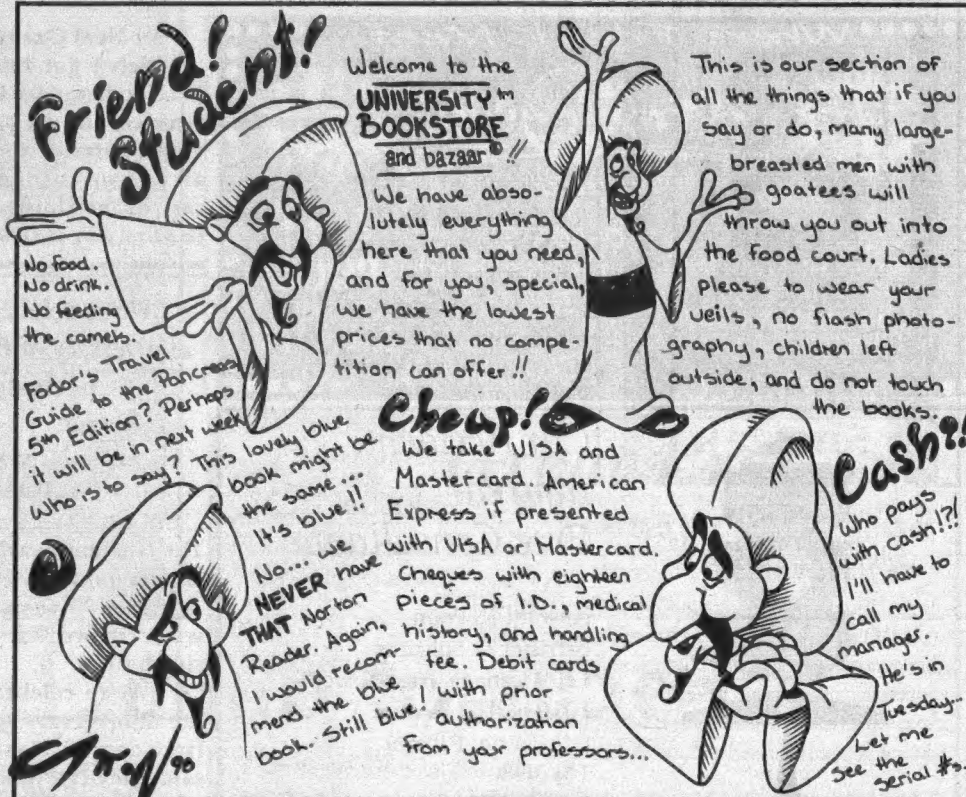 Friend!
Student!
Welcome to the
UNIVERSITY™
BOOKSTORE
and bazaar !!
We have abso-
lutely everything
here that you need,
and for you, special,
we have the lowest
prices that no compe-
tition can offer!!
This is our section of
all the things that if you
say or do, many large-
breasted men with
goatees will
throw you out into
the food court. Ladies
please to wear your
veils, no flash photo-
graphy, children left
outside, and do not touch
the books.
No food.
No drink.
No feeding
the camels.
Fodor's Travel
Guide to the Pancreas,
5th Edition? Perhaps
it will be in next week.
Who is to say? This lovely blue
book might be
the same...
It's blue!!
No... we
NEVER have
THAT Norton
Reader. Again,
I would recom-
mend the blue
book. Still blue!
Cheap!
We take VISA and
Mastercard. American
Express if presented
with VISA or Mastercard.
Cheques with eighteen
pieces of I.D., medical
history, and handling
fee. Debit cards
with prior
authorization
from your professors...
Cash?!
Who pays
with cash!?!
I'll have to
call my
manager.
He's in
Tuesday...
Let me
see the
serial #s.